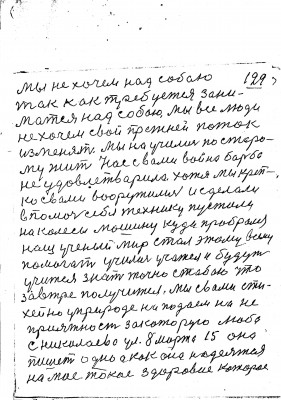 129
Мы не хочем над собаю
так как требуется зани-
матся над собою, мы все люди
не хочем свой прежней поток
изменят. Мы научили по старо-
му жит Нас с вами война барба
не удовлетварила хотя мы креп-
ко с вами вооружилис и сделали
в помоч себя технику пустили
на колеси мошину куда пробрался
наш ученый мир стал этому всему
помогат училис учатся и будут
учится знат точно с табою что
завтре получится. Мы с вами сти-
хейно у природе на подаем на не
приятност за каторую люба
с николаева ул. 8 марта 15 она
пишет одно а как она надеятся
на мае токае здоровие каторае